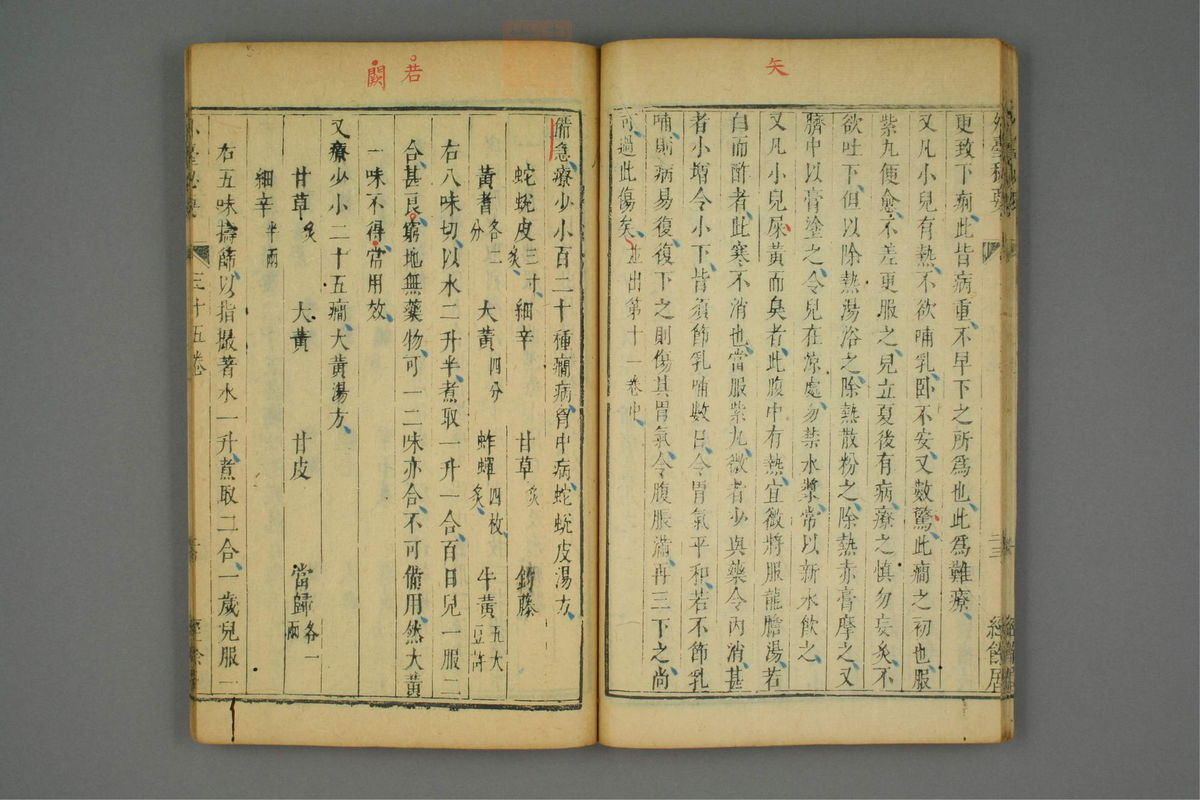 矢
更致下痢此皆病重不早下之所為也此為難療
又凡小兒有熱不欲哺乳卧不安又數驚此癎之初也服
紫丸便愈不差更服之兒立夏後有病療之慎勿妄灸不
欲吐下但以除熱湯浴之除熱散粉之除熱赤膏摩之又
臍中以膏塗之令兒在涼處勿禁水漿常以新水飲之
又凡小兒屎黃而臭者此腹中有熱宜微將服龍膽湯若
白而酢者此寒不消也當服紫丸微者少與藥令內消甚
者小增令小下皆須節乳哺數日令胃氣平和若不節乳
哺則病易復復下之則傷其胃氣令腹脹滿再三下之尚
可過此傷矣並出第十一卷中
若
闕
備急療少小百二十種癎病胷中病蛇蛻皮湯方
蛇蛻皮三寸炙 細辛 甘草炙 鉤藤
黃耆各二分 大黃四分 蚱蟬四枚炙 牛黃五大豆許
右八味切以水二升半煮取一升一合百日兒一服二
合甚良窮地無藥物可一二味亦合不可備用然大黃
一味不得常用效
又療少小二十五癎大黃湯方
甘草炙 大黃 甘皮 當歸各一兩
細辛半兩
右五味擣篩以指撮著水一升煮取二合一歲兒服二
三十五卷